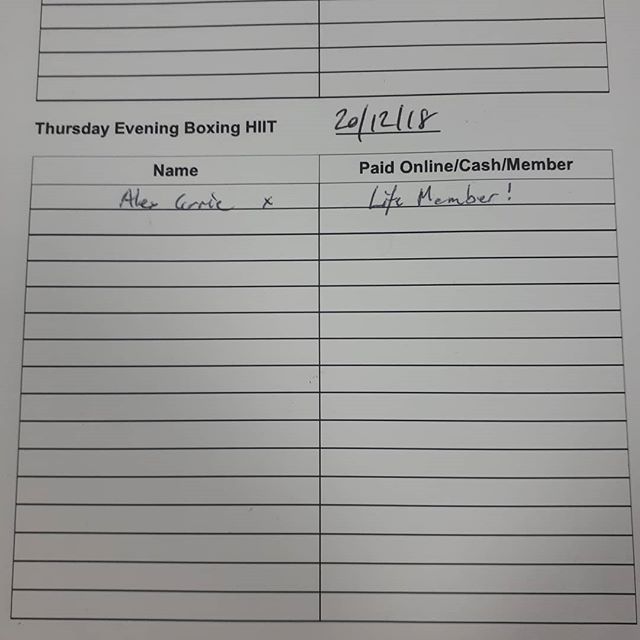 Thursday Evening Boxing HIIT 20/12/18
Name Paid Online/Cash/Member
Alex Currie x Life Member!